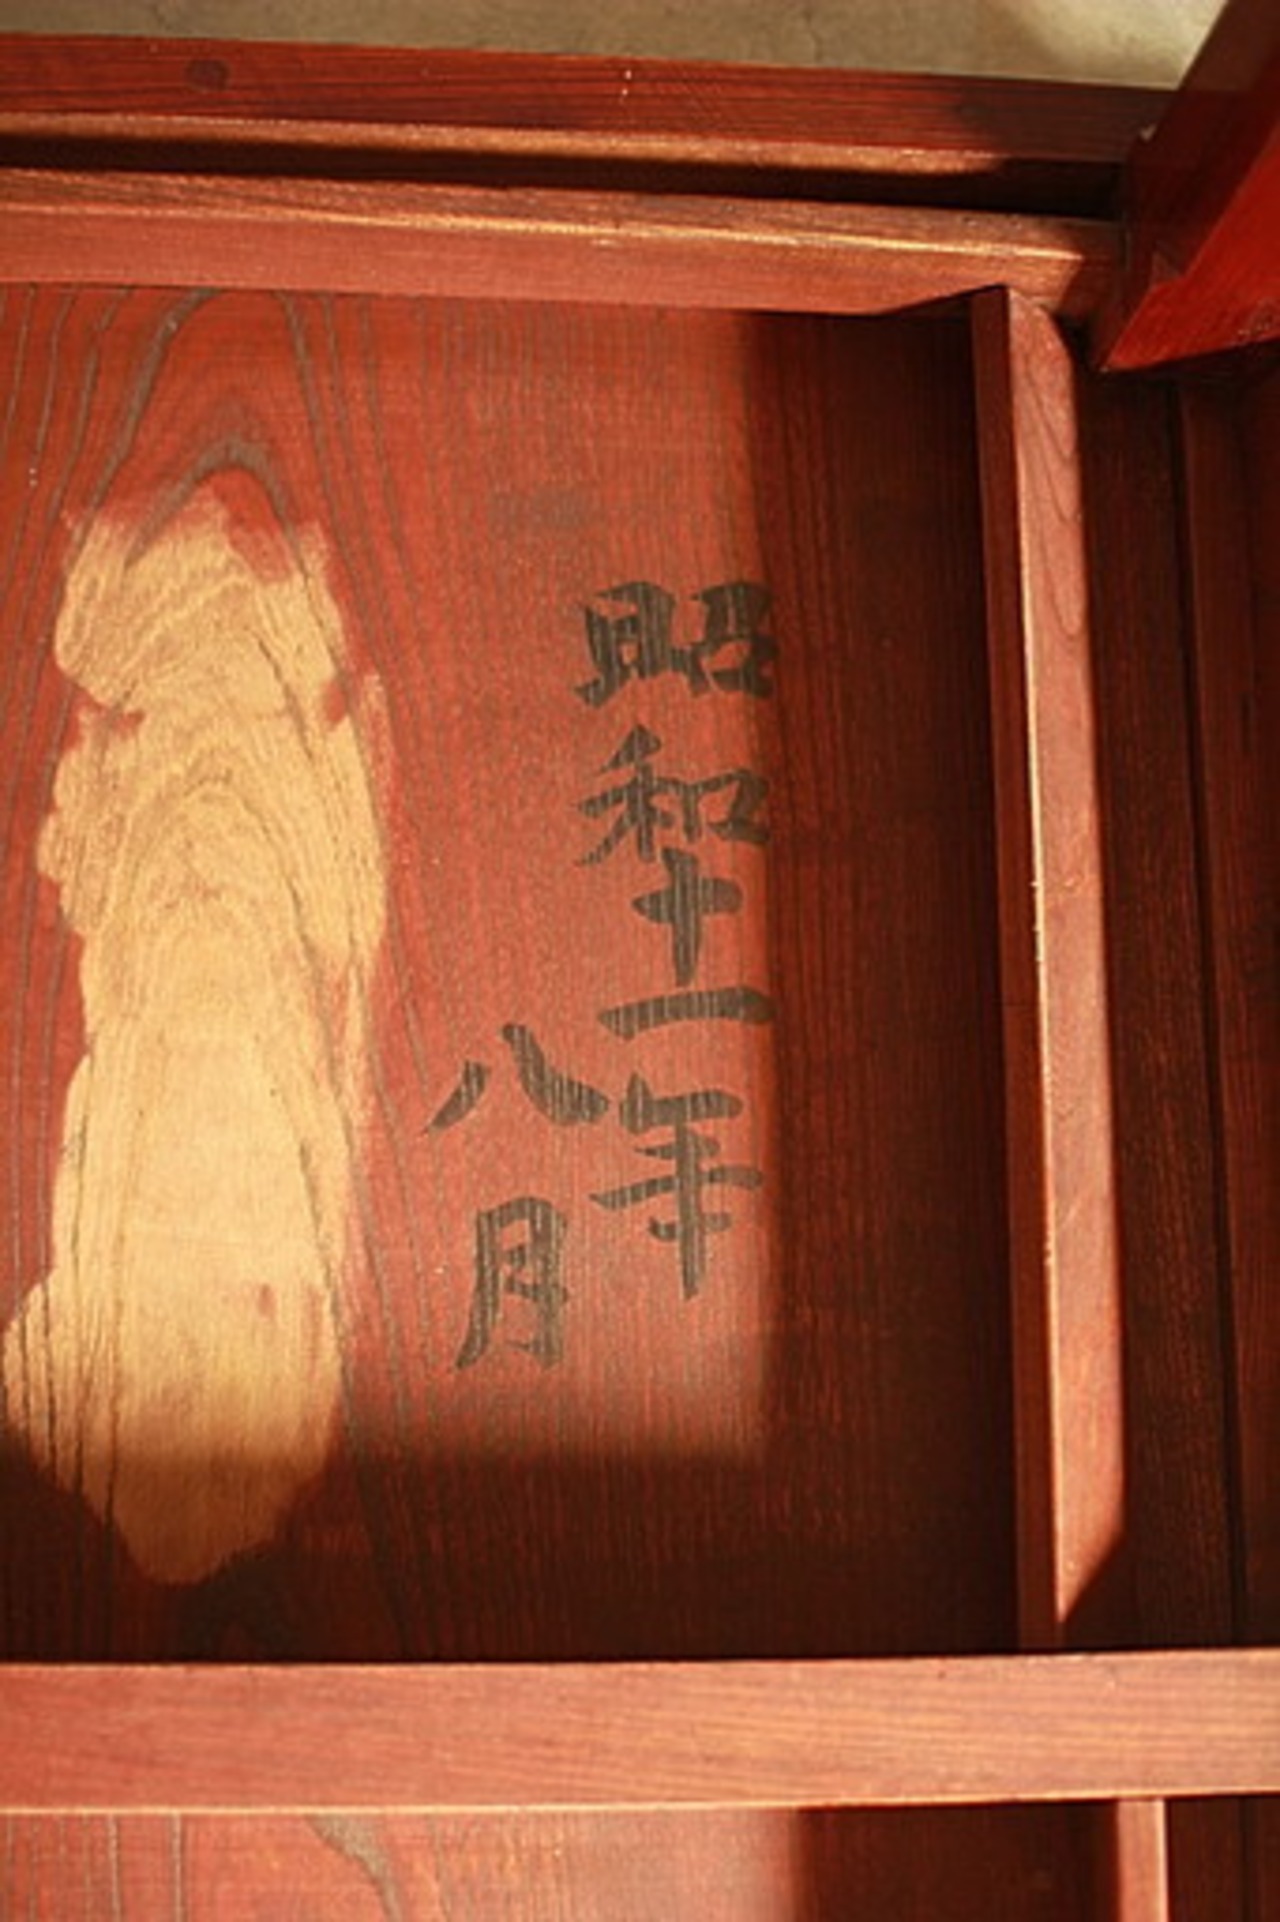 昭和十一年
八月